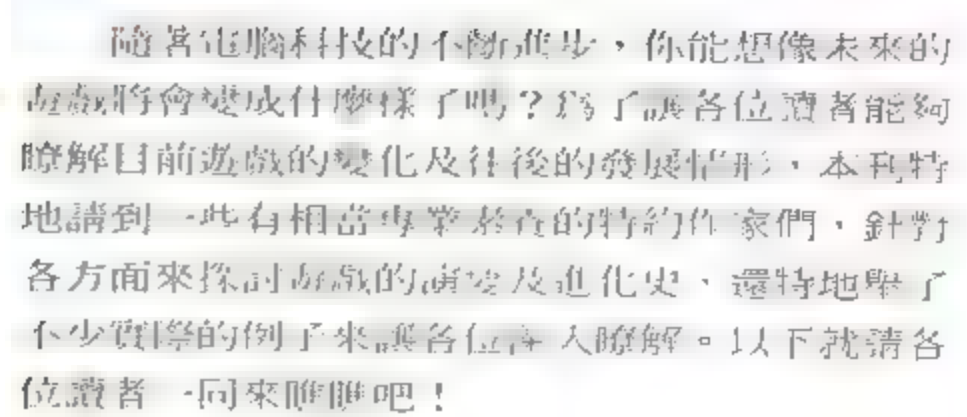 隨著電腦科技的不斷進步，你能想像未來的
遊戲將會變成什麼樣子嗎？為了讓各位讀者能夠
瞭解目前遊戲的變化及往後的發展情形，本刊特
地請到一些有相當專業素養的特約作家們，針對
各方面來探討遊戲的演變及進化史，還特地舉了
不少實際的例子來讓各位深入瞭解。以下就請各
位讀者一同來瞧瞧吧！